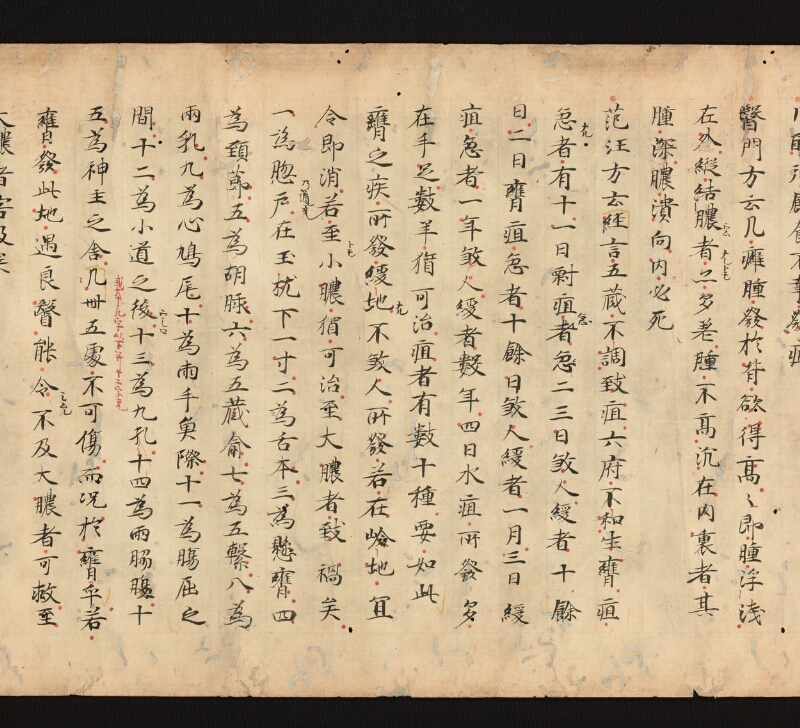 醫門方云凡癰腫發於背欲得高〻即腫浮淺
在外縱結膿者亦多差腫不高沉在内裏者其
腫深膿潰向内必死
范汪方云經言五藏不調致疽六府不和生癰疽
急者有十一日對疽者急二三日煞人緩者十餘
日二日癰疽急者十餘日煞人緩者一月三日緩
疽急者一年煞人緩者數年四日水疽所發多
在手足數年猶可治疽者有數十種要如此
癰之疾所發緩地不煞人所發若在嶮地宜
令即消若至小膿猶可治至大膿者致禍矣
一為𦚾戶在玉枕下一寸二為舌本三為懸癰四
為頸節五為胡脉六為五藏俞七為五繫八為
兩乳九為心鳩尾十為兩手魚際十一為腸屈之
間十二為小道之後十三為九孔十四為兩腸十
五為神主之舍凡卌五處不可傷而况於癰乎若
癰發此地遇良醫能令不及大膿者可救至
大膿者害及矣